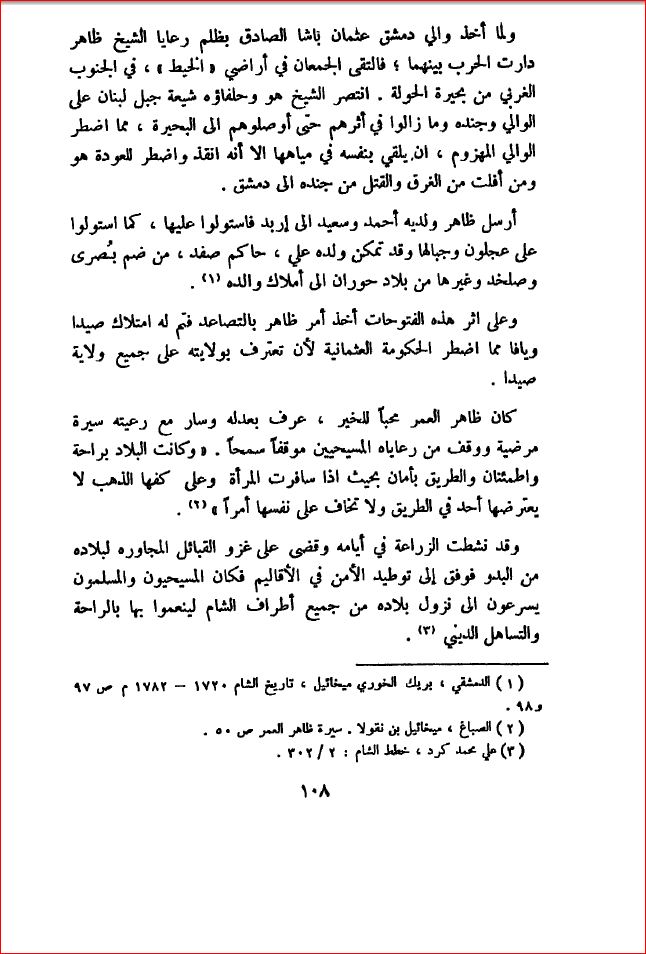 ولما أخذ والي دمشق عثمان باشا الصادق بظلم رعايا الشيخ ظاهر
دارت الحرب بينهما ؛ فالتقى الجمعان في أراضي « الخيط » ، في الجنوب
الغربي من بحيرة الحولة . انتصر الشيخ هو وحلفاؤه شيعة جبل لبنان على
الوالي وجنده وما زالوا في أثرهم حتى أوصلوهم الى البحيرة ، مما اضطر
الوالي المهزوم ، ان يلقي بنفسه في مياهها الا أنه انقذ واضطر للعودة هو
ومن أفلت من الغرق والقتل من جنده الى دمشق .
أرسل ظاهر ولديه أحمد وسعيد الى إربد فاستولوا عليها ، كما استولوا
على عجلون وجبالها وقد تمكن ولده علي ، حاكم صفد ، من ضم بُصرى
وصلخد وغيرها من بلاد حوران الى أملاك والده (١) .
وعلى اثر هذه الفتوحات أخذ أمر ظاهر بالتصاعد فتم له امتلاك صيدا
ويافا مما اضطر الحكومة العثمانية لأن تعترف بولايته على جميع ولاية
صيدا .
كان ظاهر العمر محباً للخير ، عرف بعدله وسار مع رعيته سيرة
مرضية ووقف من رعاياه المسيحيين موقفاً سمحاً . « وكانت البلاد براحة
واطمئنان والطريق بأمان بحيث اذا سافرت المرأة وعلى كفها الذهب لا
يعترضها أحد في الطريق ولا تخاف على نفسها أمراً » (٢) .
وقد نشطت الزراعة في أيامه وقضى على غزو القبائل المجاوره لبلاده
من البدو فوفق إلى توطيد الأمن في الأقاليم فكان المسيحيون والمسلمون
يسرعون الى نزول بلاده من جميع أطراف الشام لينعموا بها بالراحة
والتساهل الديني (٣) .
(١) الدمشقي ، بريك الخوري ميخائيل ، تاريخ الشام ١٧٢٠ – ١٧٨٢ م ص ٩٧
و٩٨ .
(٢) الصباغ ، ميخائيل بن نقولا . سيرة ظاهر العمر ص ٥٠ .
(٣) علي محمد كرد ، خطط الشام : ٢ / ٣٠٢ .
١٠٨